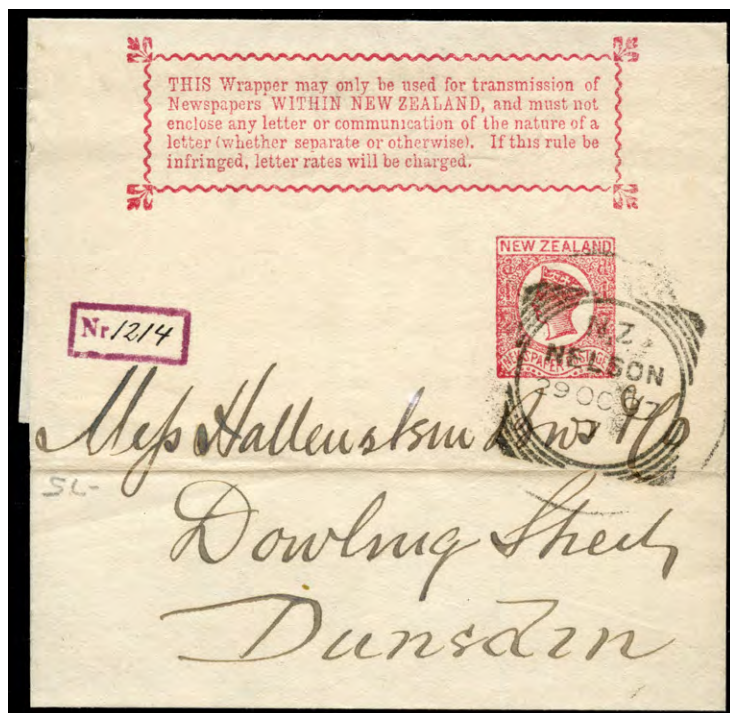 THIS Wrapper may only be used for transmission of
Newspapers WITHIN NEW ZEALAND, and must not
enclose any letter or communication of the nature of a
letter (whether separate or otherwise). If this rule be
infringed, letter rates will be charged.
NEW ZEALAND
NEWSPAPER
Nr 1214
N.Z.
NELSON
29 OC 97
7
Mess Hallenstein Bros & Co
5L-
Dowling Street
Dunedin